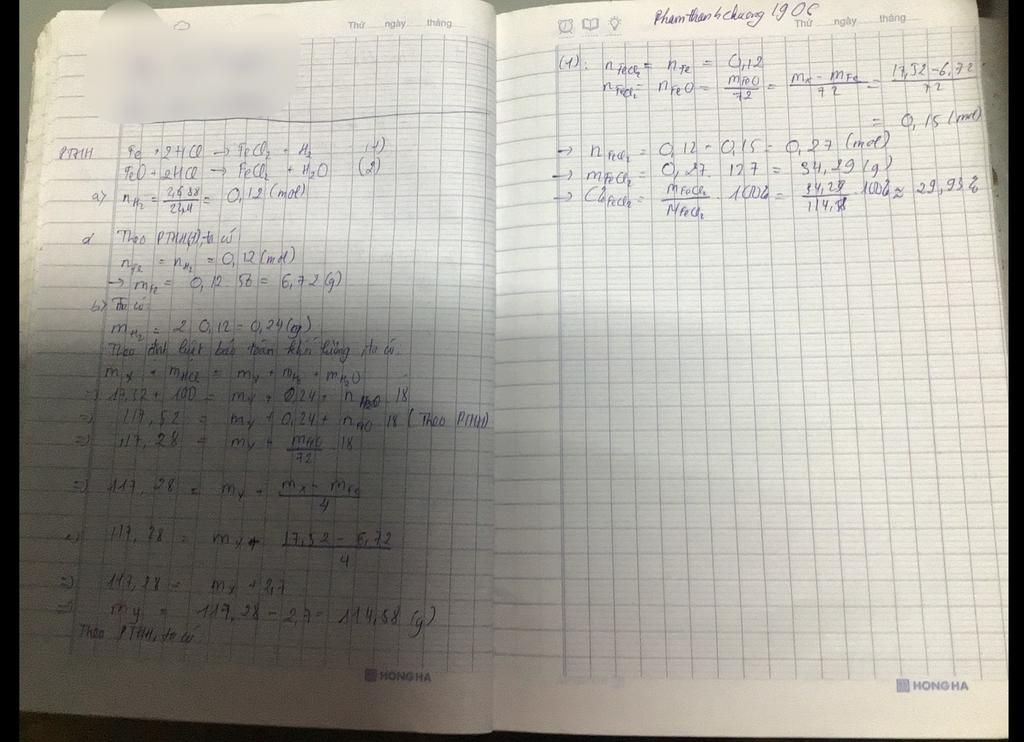 Thứ ngày tháng
PTHH Fe + 2HCl → FeCl2 + H2 (1)
FeO + 2HCl → FeCl2 + H2O (2)
a) nH2 = 2,688/22,4 = 0,12 (mol)
Theo PTHH(1), ta có
nFe = nH2 = 0,12 (mol)
→ mFe = 0,12 . 56 = 6,72 (g)
b) Ta có
mH2 = 2 . 0,12 = 0,24 (g)
Theo định luật bảo toàn khối lượng, ta có:
mX + mHCl = mY + mH2 + mH2O
⇒ 17,52 + 100 = mY + 0,24 + nH2O . 18
⇒ 117,52 = mY + 0,24 + nFeO . 18 (Theo PTHH)
⇒ 117,28 = mY + mFeO/72 . 18
⇒ 117,28 = mY + (mX - mFe)/4
⇒ 117,28 = mY + (17,52 - 6,72)/4
⇒ 117,28 = mY + 2,7
⇒ mY = 117,28 - 2,7 = 114,58 (g)
Theo PTHH, ta có
HONG HA
Phamthanhchuong 1906
Thứ ngày tháng
(1): nFeCl2 = nFe = 0,12
nFeCl2 = nFeO = mFeO/72 = (mX - mFe)/72 = (17,52 - 6,72)/72
= 0,15 (mol)
→ nFeCl2 = 0,12 + 0,15 = 0,27 (mol)
→ mFeCl2 = 0,27 . 127 = 34,29 (g)
→ C%FeCl2 = mFeCl2/MFeCl2 . 100% = 34,29/114,58 . 100% ≈ 29,93%
HONG HA